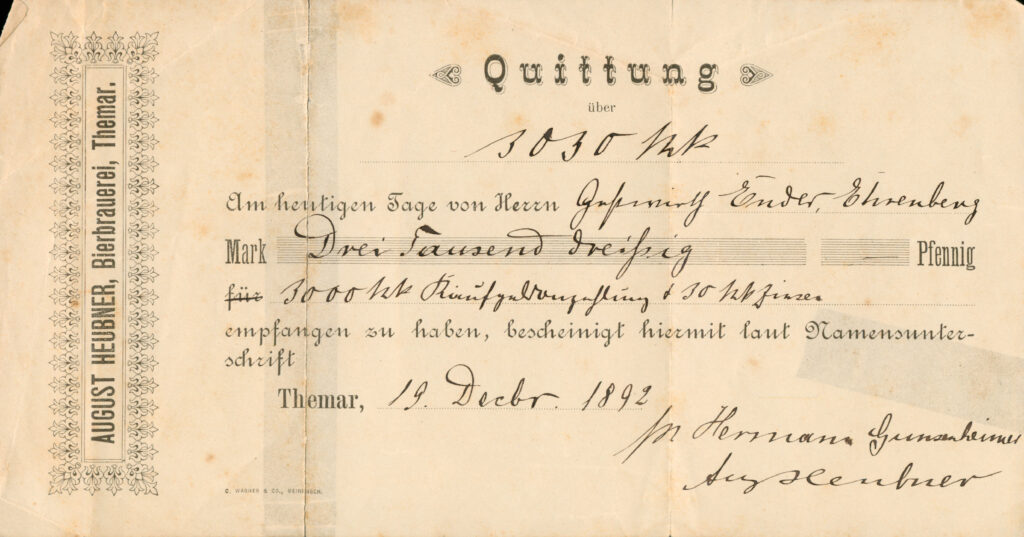 AUGUST HEUBNER, Bierbrauerei, Themar.
Quittung
über
3030 Mk
Am heutigen Tage von Herrn Gastwirth Ender, Ehrenberg
Mark Drei Tausend dreißig — Pfennig
für 3000 Mk Kaufgeldanzahlung & 30 Mk Zinsen
empfangen zu haben, bescheinigt hiermit laut Namensunter-
schrift
Themar, 19. Decbr. 1892
Hermann Gunsenheimer
Aug Heubner
C. WAGNER & CO., MEININGEN.